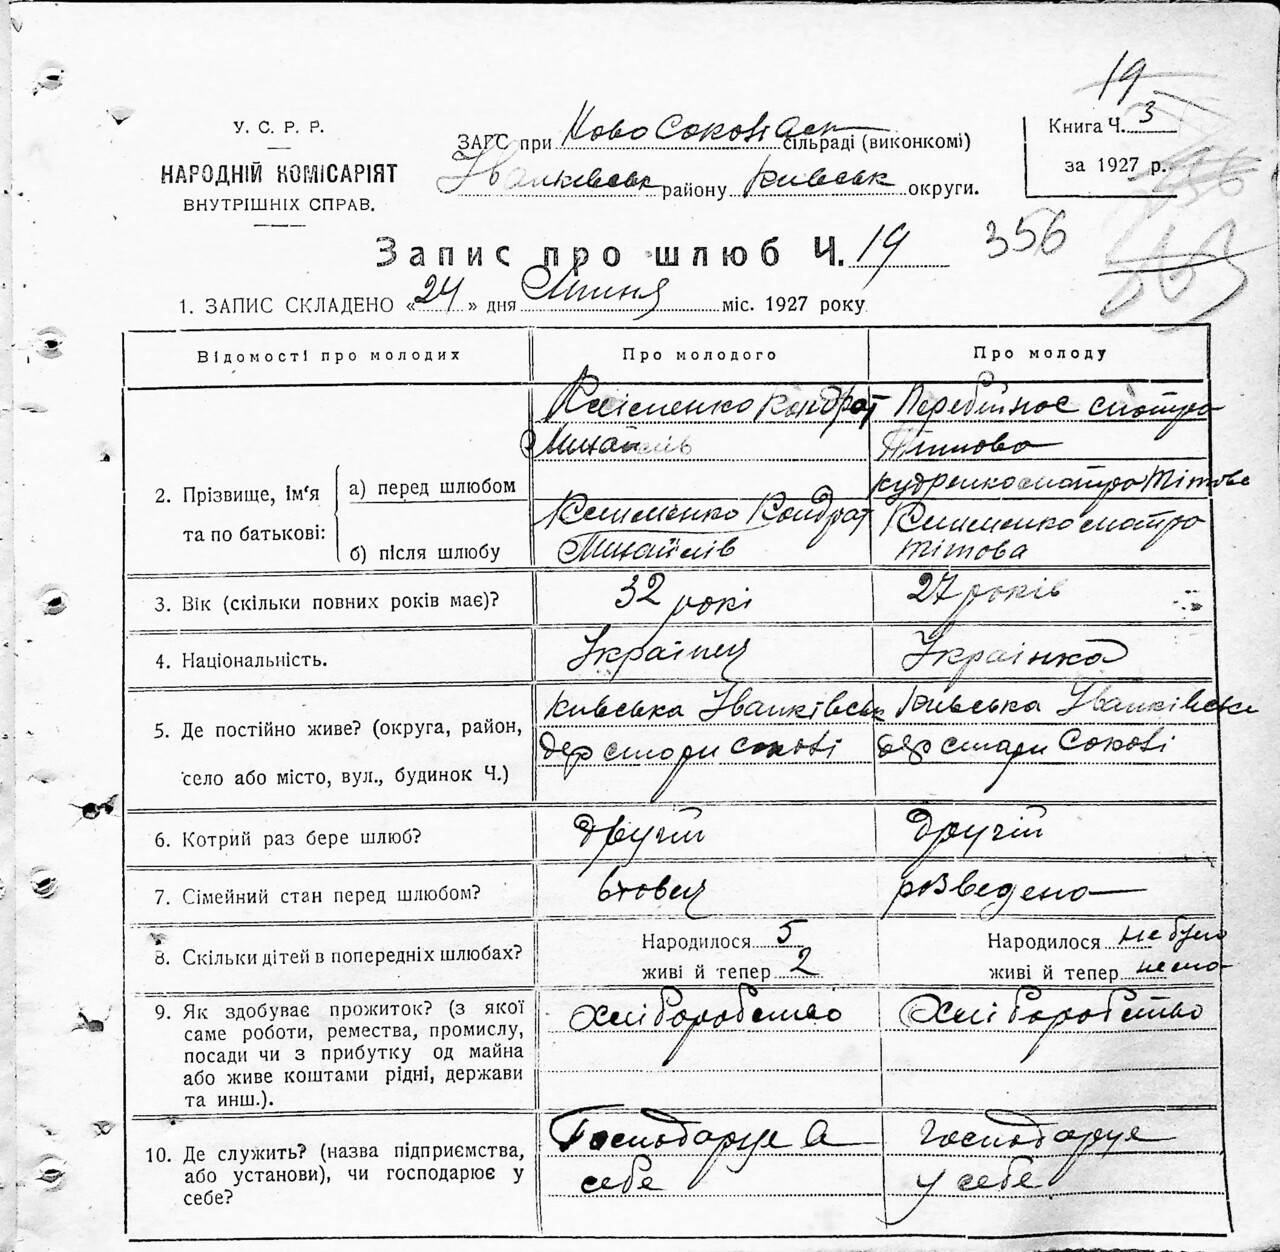 19
У. С. Р. Р.
НАРОДНІЙ КОМІСАРІЯТ
ВНУТРІШНІХ СПРАВ.
ЗАГС при Ново Соковіаск сільраді (виконкомі)
Іванківськ району Київськ округи.
Книга Ч. 3
за 1927 р.
Запис про шлюб Ч. 19
356
1. ЗАПИС СКЛАДЕНО «24» дня Липня міс. 1927 року
Відомості про молодих
Про молодого
Про молоду
2. Прізвище, ім'я та по батькові:
а) перед шлюбом
Клименко Кондрат
Михайлів
Перебийнос
Тітова
Кудренко Тітова
б) після шлюбу
Клименко Кондрат
Михайлів
Клименко
Тітова
3. Вік (скільки повних років має)?
32 рокі
27 років
4. Національність.
Українец
Українка
5. Де постійно живе? (округа, район,
село або місто, вул., будинок Ч.)
Київська Іванківськ
дер стари Сокові
Київська Іванківськ
дер стари Сокові
6. Котрий раз бере шлюб?
другій
другій
7. Сімейний стан перед шлюбом?
вдовец
розведена
8. Скільки дітей в попередніх шлюбах?
Народилося 5
живі й тепер 2
Народилося не було
живі й тепер нема
9. Як здобуває прожиток? (з якої
саме роботи, ремества, промислу,
посади чи з прибутку од майна
або живе коштами рідні, держави
та инш.).
Хліборобство
Хліборобство
10. Де служить? (назва підприємства,
або установи), чи господарює у
себе?
Господарує
себе
господарує
у себе